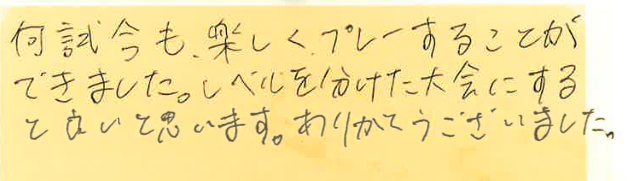 何試合も、楽しく、プレーすることが
できました。レベルを分けた大会にする
と良いと思います。ありがとうございました。